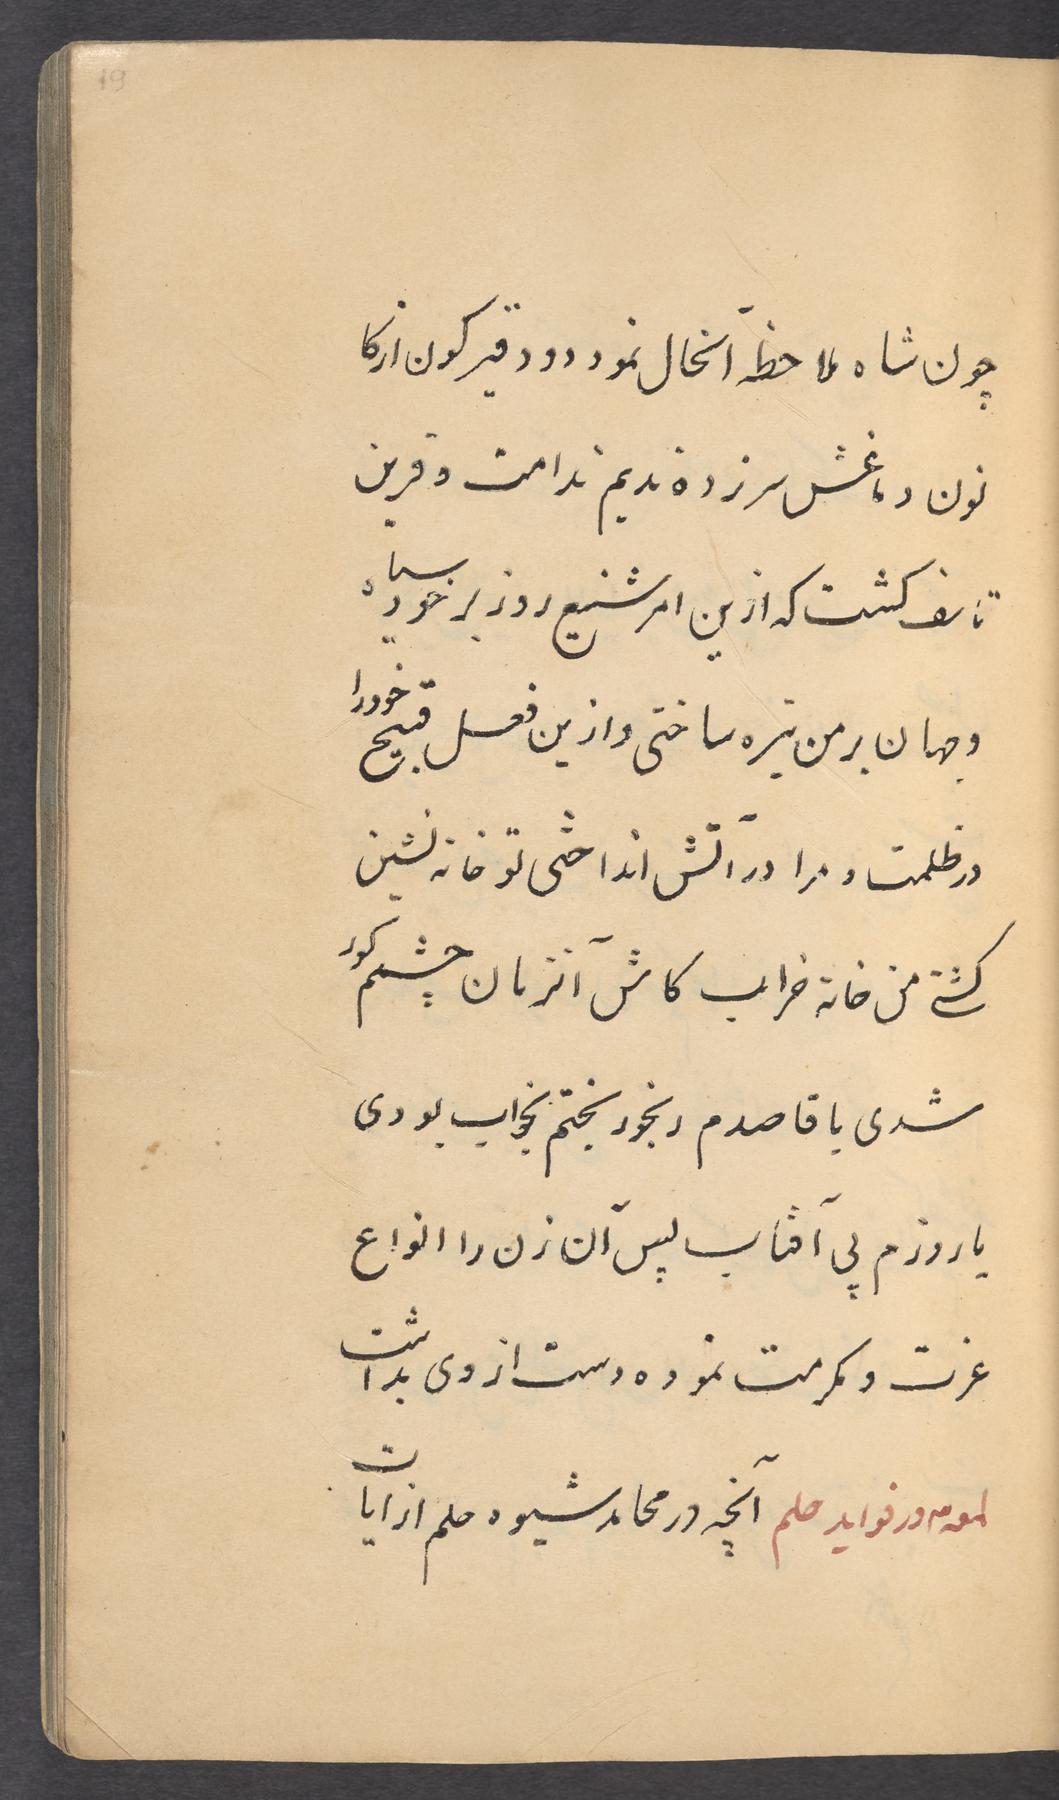 چون شاه ملاحظه آنحال نمود دود قیرکون از کا
نون دماغش سرزده ندیم ندامت و قرین
تاسف کشت که ازین امر شنیع روز بر خود سیاه
و جهان بر من تیره ساختی و ازین فعل قبیح خود را
در ظلمت و مرا در آتش انداختی تو خانه نشین
کشتی من خانه خراب کاش آنزمان چشمم کور
شدی یا قاصدم رنجور بختم بخواب بودی
یا روزم بی آفتاب پس آن زن را انواع
عزت و مکرمت نموده دست از وی بداشت
لمعه ۳ در فواید حلم آنچه در محامد شیوه حلم از ایات
19